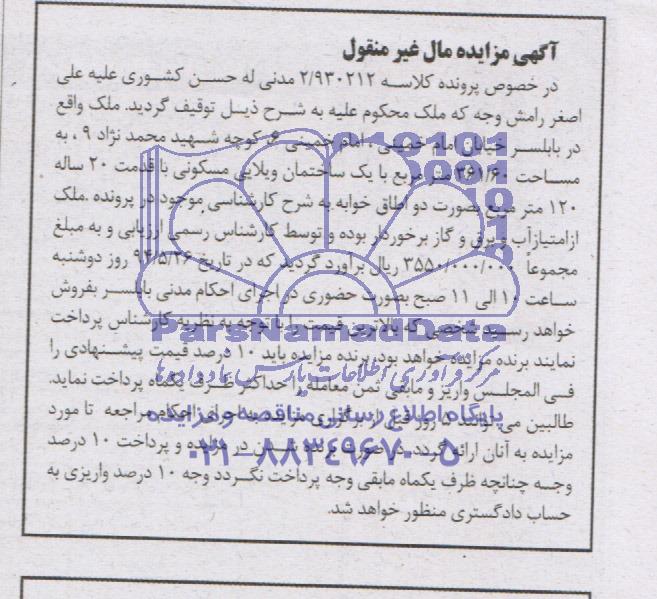 آگهی مزایده مال غیر منقول
در خصوص پرونده کلاسه ۲/۹۳۰۲۱۲ مدنی له حسن کشوری علیه علی
اصغر رامش وجه که ملک محکوم علیه به شرح ذیل توقیف گردید. ملک واقع
در بابلسر خیابان امام خمینی ، امام خمینی ۶ کوچه شهید محمد نژاد ۹ ، به
مساحت ۳۶۱/۶۰ متر مربع با یک ساختمان ویلایی مسکونی با قدمت ۲۰ ساله
۱۲۰ متر مربع بصورت دو اطاق خوابه به شرح کارشناسی موجود در پرونده .ملک
ازامتیازآب و برق و گاز برخوردار بوده و توسط کارشناس رسمی ارزیابی و به مبلغ
مجموعاً ۳۵۵۰/۰۰۰/۰۰۰ ریال برآورد گردید که در تاریخ ۹۴/۵/۲۶ روز دوشنبه
ساعت ۱۰ الی ۱۱ صبح بصورت حضوری در اجرای احکام مدنی بابلسر بفروش
خواهد رسید شخصی که بالاترین قیمت را با توجه به نظریه کارشناس پرداخت
نمایند برنده مزایده خواهد بود.برنده مزایده باید ۱۰ درصد قیمت پیشنهادی را
فی المجلس واریز و مابقی ثمن معامله را حداکثر ظرف یکماه پرداخت نماید.
طالبین می توانند ۵ روز قبل از برگزاری مزایده به اجرای احکام مراجعه تا مورد
مزایده به آنان ارائه گردد.در صورت برنده شدن در مزایده و پرداخت ۱۰ درصد
وجه چنانچه ظرف یکماه مابقی وجه پرداخت نگردد وجه ۱۰ درصد واریزی به
حساب دادگستری منظور خواهد شد.
ParsNamadData
مرکز فرآوری اطلاعات پارس نماد داده ها
پایگاه اطلاع رسانی مناقصه و مزایده
۰۲۱-۸۸۳۴۹۶۷۰-۵